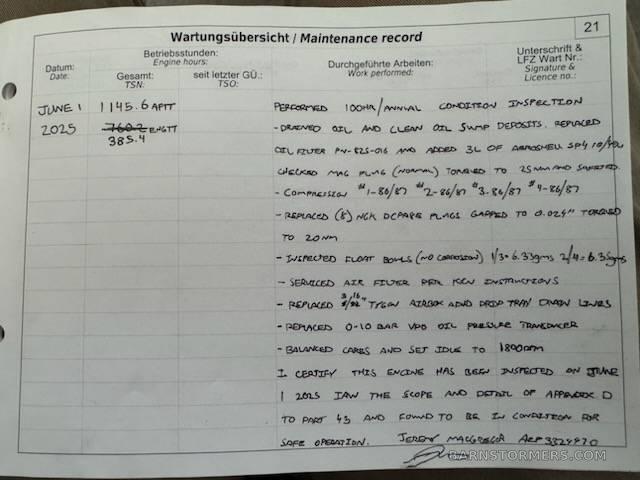 21
Wartungsübersicht / Maintenance record
Datum:
Date:
Betriebsstunden:
Engine hours:
Gesamt:
TSN:
seit letzter GÜ.:
TSO:
Durchgeführte Arbeiten:
Work performed:
Unterschrift &
LFZ Wart Nr.:
Signature &
Licence no.:
JUNE 1 1145.6 AFTT PERFORMED 100HR/ANNUAL CONDITION INSPECTION
2025 ENGTT - DRAINED OIL AND CLEAN OIL SUMP DEPOSITS. REPLACED
385.4
OIL FILTER PN-825-016 AND ADDED 3L OF AEROSHELL SP4 10/40
CHECKED MAG PLUG (NORMAL) TORQUED TO 25NM AND SAFETIED.
- COMPRESSION #1-86/87 #2-86/87 #3-86/87 #4-86/87
- REPLACED (8) NGK DCPR8E PLUGS GAPPED TO 0.024" TORQUED
TO 20NM
- INSPECTED FLOAT BOWLS (NO CORROSION) 1/3=6.33gms 2/4=6.35gms
- SERVICED AIR FILTER PER K&N INSTRUCTIONS
- REPLACED 3/16" TYGON AIRBOX AND DRIP TRAY DRAIN LINES
- REPLACED 0-10 BAR VDO OIL PRESSURE TRANSDUCER
- BALANCED CARBS AND SET IDLE TO 1800RPM
I CERTIFY THIS ENGINE HAS BEEN INSPECTED ON JUNE
1 2025 IAW THE SCOPE AND DETAIL OF APPENDIX D
TO PART 43 AND FOUND TO BE IN CONDITION FOR
SAFE OPERATION. JEREMY MACGREGOR A&P 3324970
BARNSTORMERS.COM